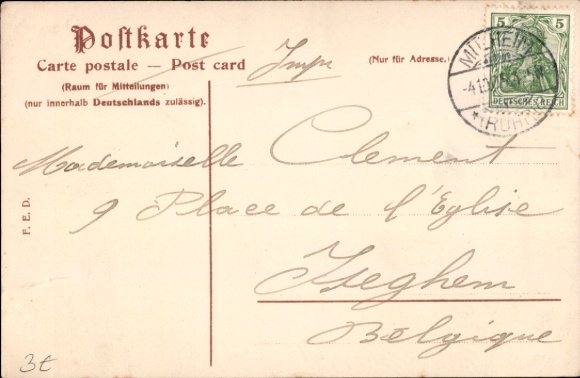 Postkarte
Carte postale — Post card
(Raum für Mitteilungen)
(nur innerhalb Deutschlands zulässig).
Impr
(Nur für Adresse.)
5 5
DEUTSCHES REICH
MÜLHEIM
*(RUHR)
Mademoiselle Clement
9 Place de l'Eglise
Iseghem
Belgique
F. E. D.
3t